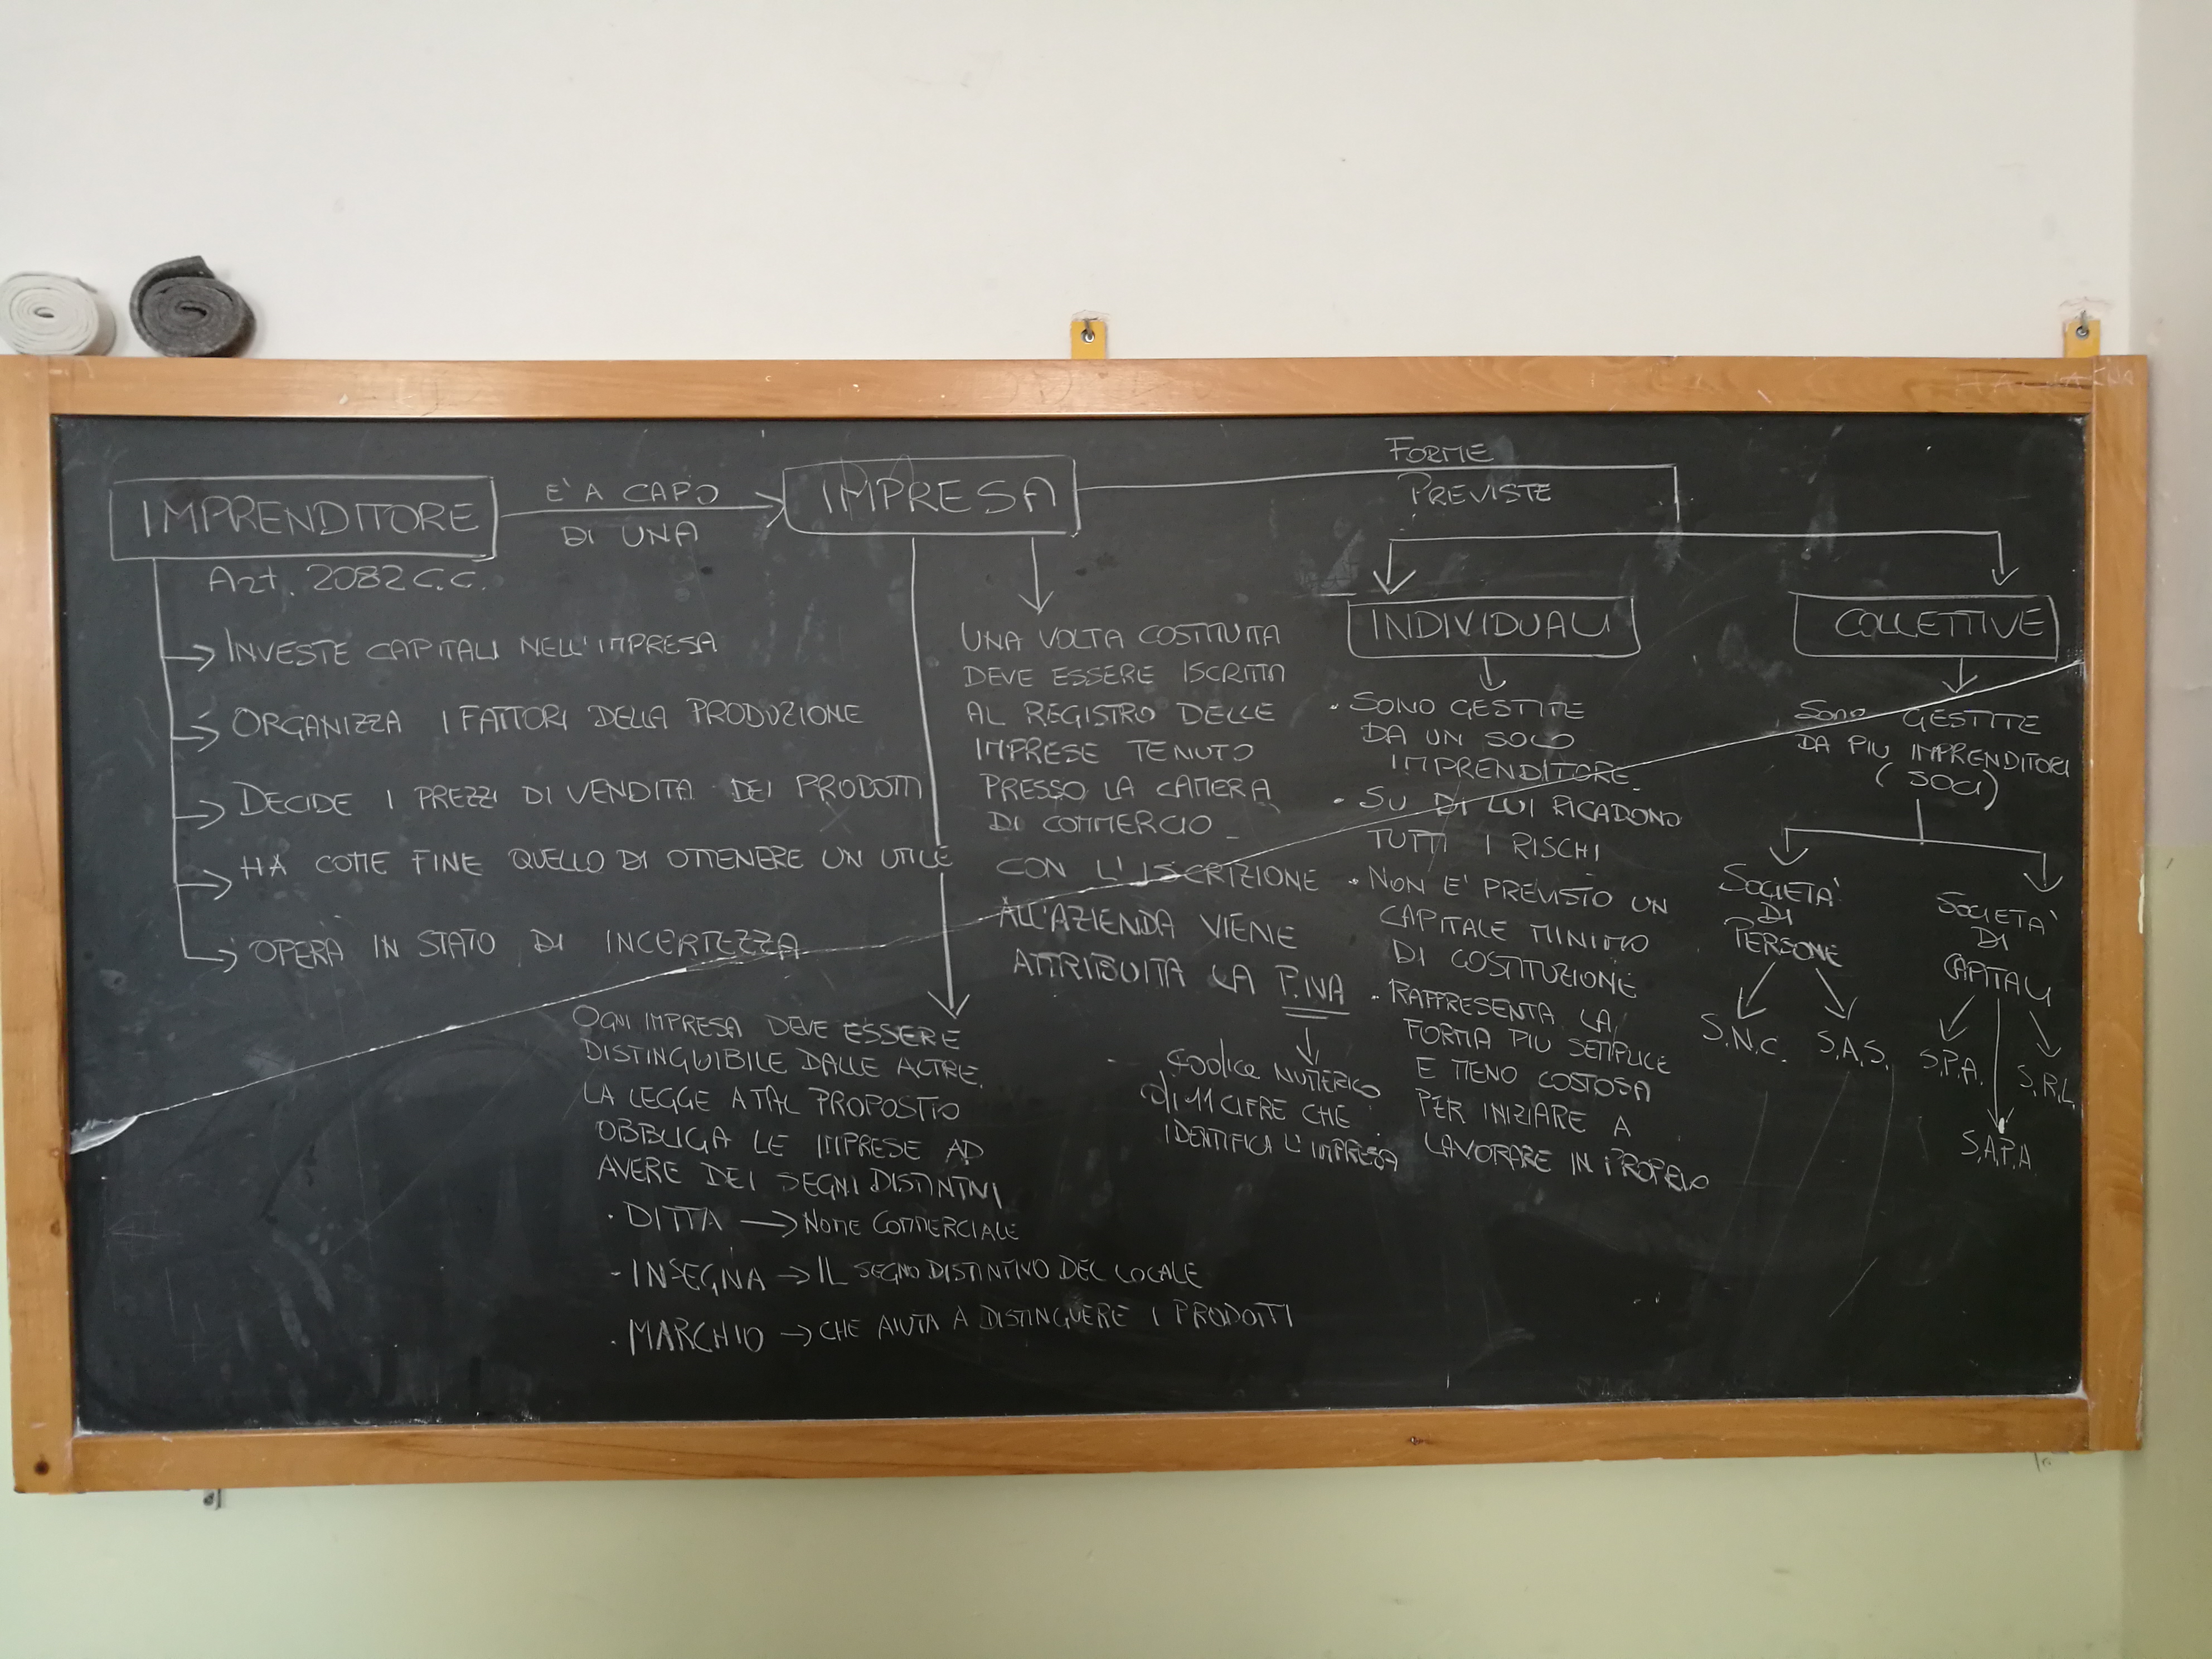 IMPRENDITORE
Art. 2082 C.C.
INVESTE CAPITALI NELL'IMPRESA
ORGANIZZA I FATTORI DELLA PRODUZIONE
DECIDE I PREZZI DI VENDITA DEI PRODOTTI
HA COME FINE QUELLO DI OTTENERE UN UTILE
OPERA IN STATO DI INCERTEZZA
E' A CAPO
DI UNA
IMPRESA
OGNI IMPRESA DEVE ESSERE
DISTINGUIBILE DALLE ALTRE.
LA LEGGE A TAL PROPOSTIO
OBBLIGA LE IMPRESE AD
AVERE DEI SEGNI DISTINTIVI
· DITTA → NOME COMMERCIALE
- INSEGNA → IL SEGNO DISTINTIVO DEL LOCALE
· MARCHIO → CHE AIUTA A DISTINGUERE I PRODOTTI
UNA VOLTA COSTITUITA
DEVE ESSERE ISCRITTA
AL REGISTRO DELLE
IMPRESE TENUTO
PRESSO LA CAMERA
DI COMMERCIO
CON L'ISCRIZIONE
ALL'AZIENDA VIENE
ATTRIBUITA LA P.IVA
Codice NUMERICO
di 11 CIFRE CHE
IDENTIFICA L'IMPRESA
FORME
PREVISTE
INDIVIDUALI
· SONO GESTITE
DA UN SOLO
IMPRENDITORE
· SU DI LUI RICADONO
TUTTI I RISCHI
· NON E' PREVISTO UN
CAPITALE MINIMO
DI COSTITUZIONE
· RAPPRESENTA LA
FORMA PIU SEMPLICE
E MENO COSTOSA
PER INIZIARE A
LAVORARE IN PROPRIO
COLLETTIVE
SONO GESTITE
DA PIU IMPRENDITORI
(SOCI)
SOCIETA'
DI
PERSONE
S.N.C.
S.A.S.
SOCIETA'
DI
CAPITALI
S.P.A.
S.R.L.
S.A.P.A